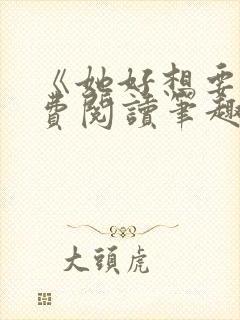 《她好想要
費閱讀筆趣
大頭虎